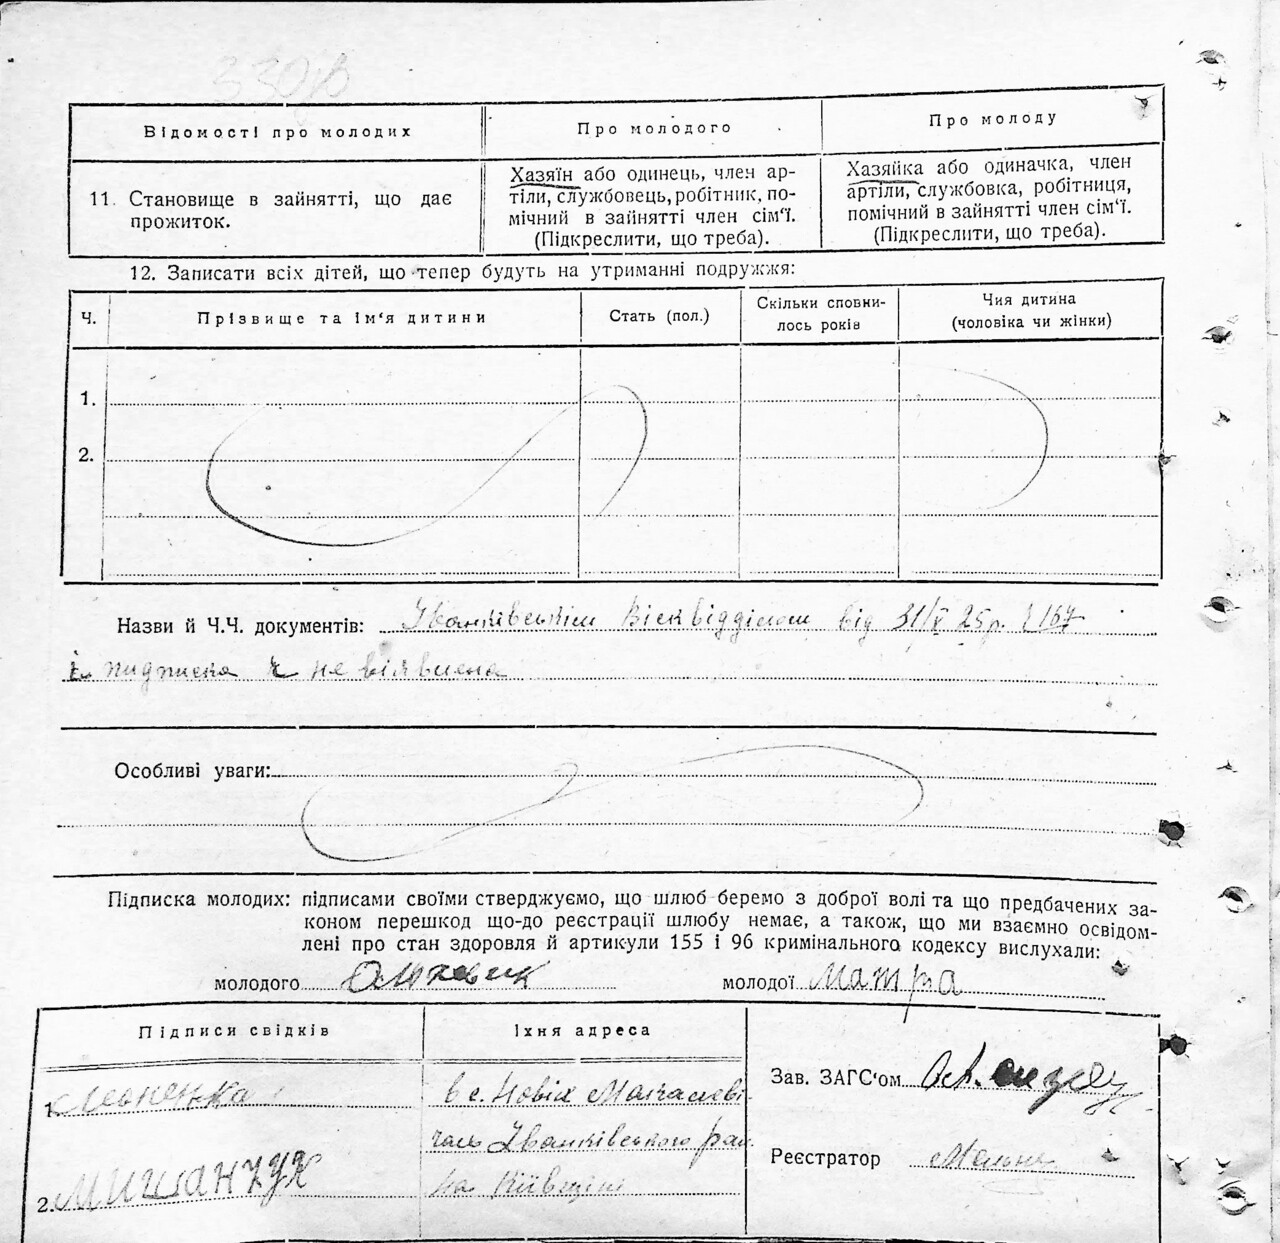 Відомості про молодих
Про молодого
Про молоду
11. Становище в зайнятті, що дає
прожиток.
Хазяїн або одинець, член ар-
тіли, службовець, робітник, по-
мічний в зайнятті член сім‘ї.
(Підкреслити, що треба).
Хазяйка або одиначка, член
артіли, службовка, робітниця,
помічний в зайнятті член сім‘ї.
(Підкреслити, що треба).
12. Записати всіх дітей, що тепер будуть на утриманні подружжя:
Ч.
Прізвище та ім‘я дитини
Стать (пол.)
Скільки сповни-
лось років
Чия дитина
(чоловіка чи жінки)
1.
2.
Назви й Ч.Ч. документів: Іванківськім від 31/X 25 р. 167
підписка не виявлена
Особливі уваги:
Підписка молодих: підписами своїми стверджуємо, що шлюб беремо з доброї волі та що предбачених за-
коном перешкод що-до реєстрації шлюбу немає, а також, що ми взаємно освідом-
лені про стан здоровля й артикули 155 і 96 кримінального кодексу вислухали:
молодого
молодої
Підписи свідків
Їхня адреса
1.
в с. Нових
Іванківського рай.
на Київщині
2. Мишанчук
Зав. ЗАГС‘ом
Реєстратор